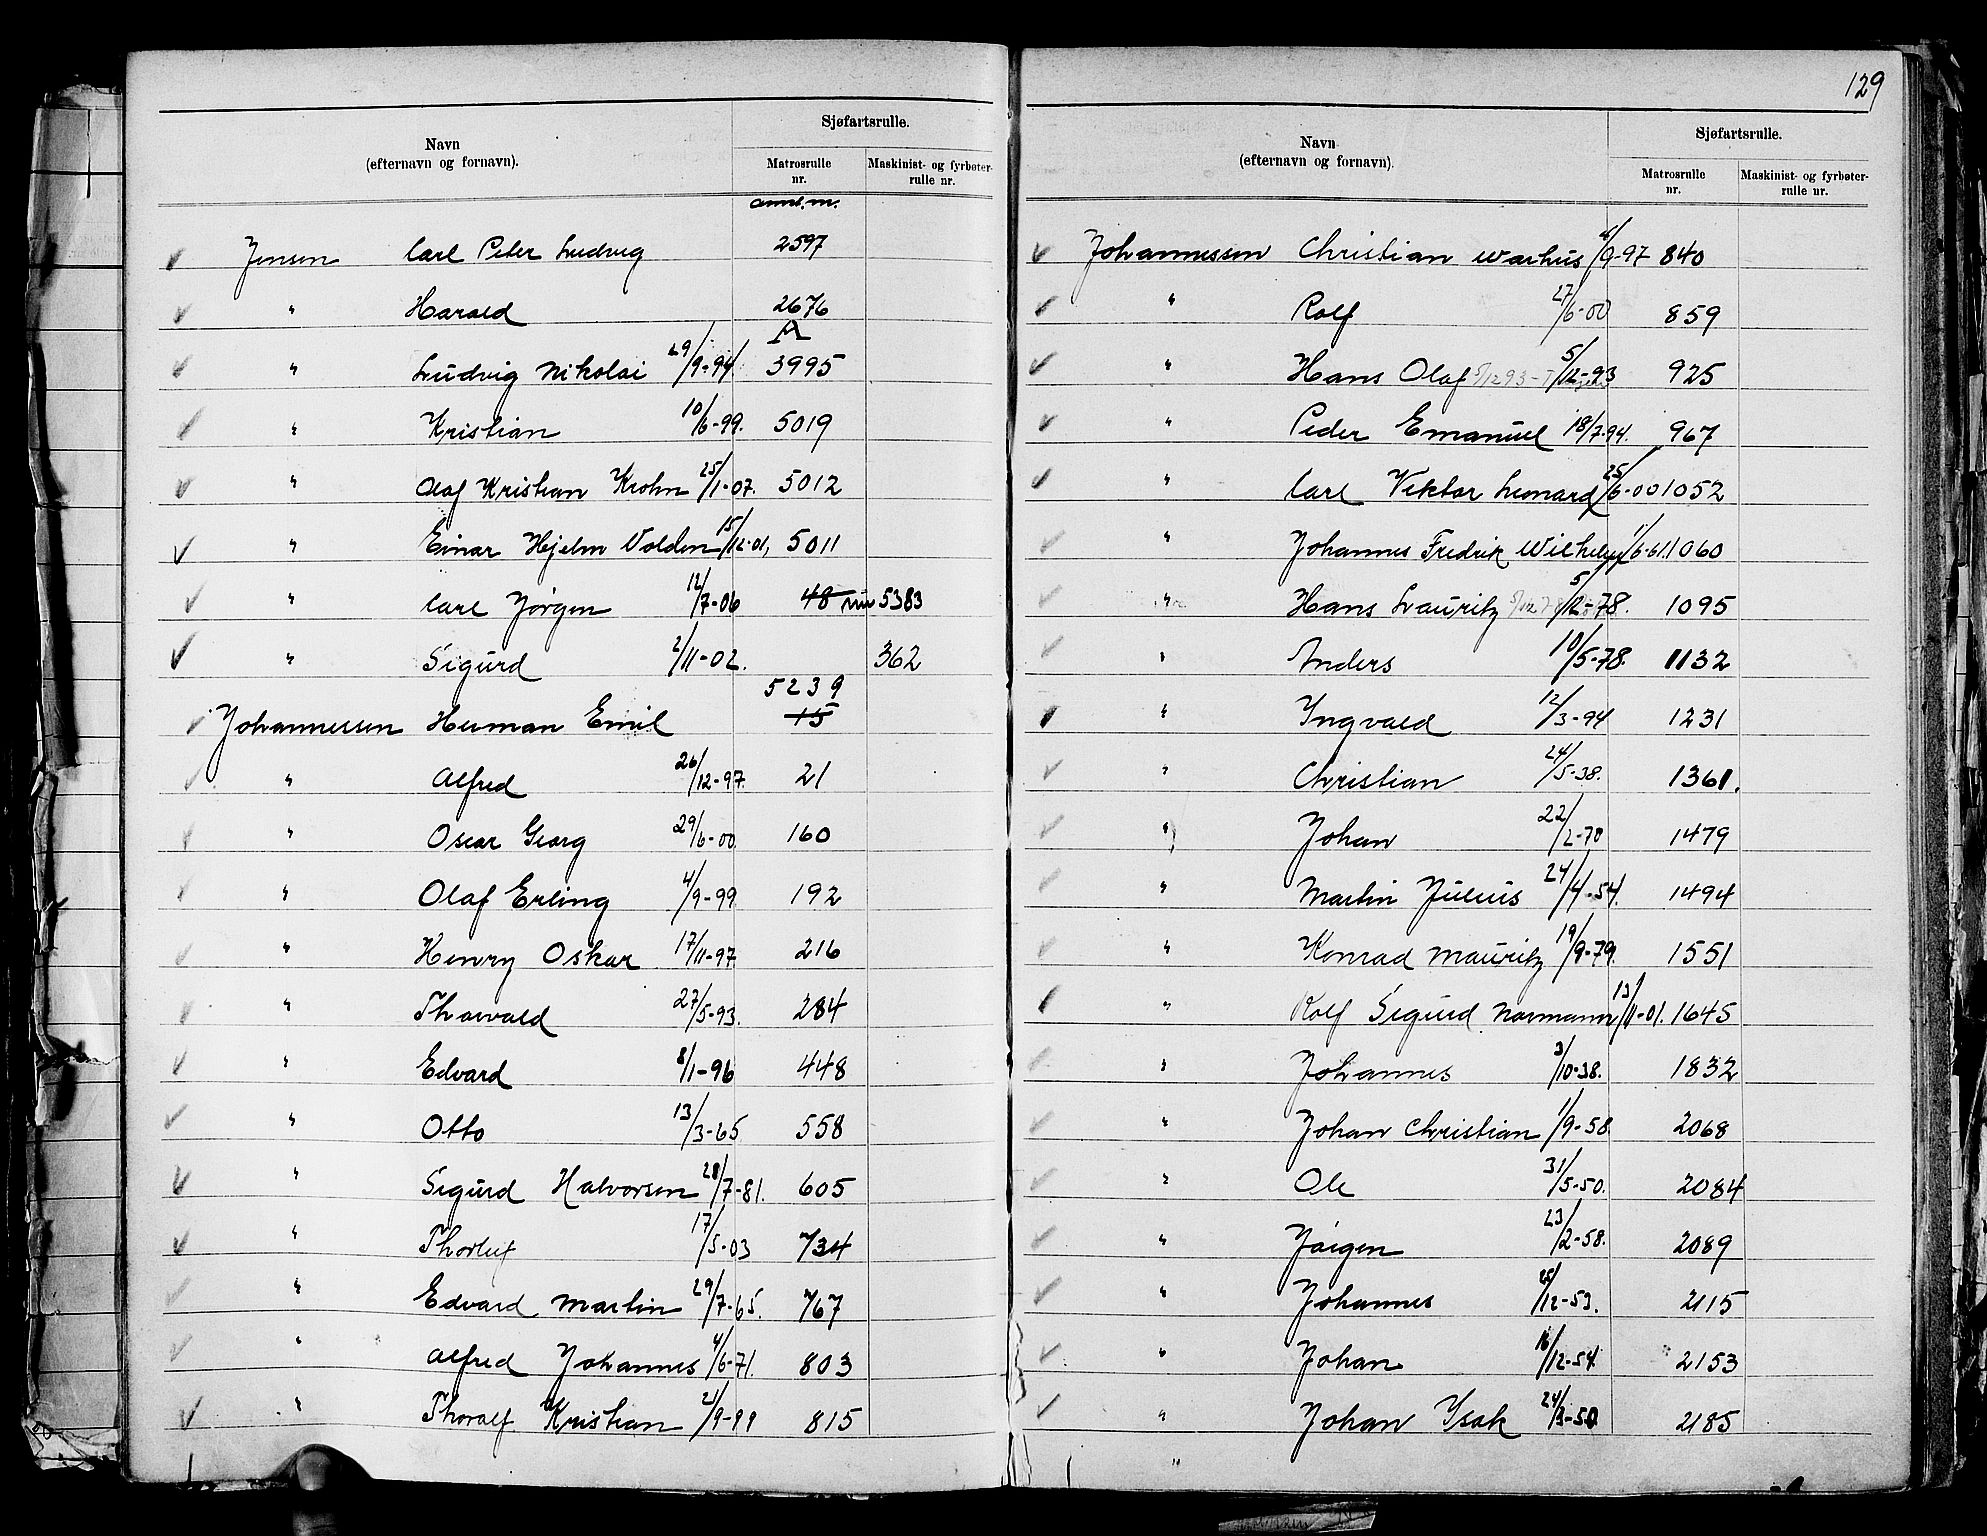 129
Navn
(efternavn og fornavn).
Sjøfartsrulle.
Matrosrulle
nr.
Maskinist- og fyrbøter-
rulle nr.
annl. m.
Jensen Carl Peter Ludvig 2597
" Harald 2676
A
" Ludvig Nikolai 29/9-94. 3995
" Kristian 10/6-99. 5019
" Olaf Kristian Krohn 25/1-07. 5012
" Einar Hjelm Volden 15/12-01, 5011
" Carl Jørgen 12/7-06 48 nu 5383
" Sigurd 2/11-02. 362
5239
Johannessen Herman Emil 15
" Alfred 26/12-97. 21
" Oscar Georg 29/6-00 160
" Olaf Erling 4/9-99 192
" Henry Oskar 17/11-97 216
" Thorvald 27/5-93. 284
" Edvard 8/1-96 448
" Otto 13/3-65 558
" Sigurd Halvorsen 28/7-81. 605
" Thorleif 17/5-03 734
" Edvard Martin 29/7-65. 767
" Alfred Johannes 4/6-71. 803
" Thoralf Kristian 21/9-99 815
Navn
(efternavn og fornavn).
Sjøfartsrulle.
Matrosrulle
nr.
Maskinist- og fyrbøter-
rulle nr.
Johannessen Christian Warhus /9-97 840
" Rolf 27/6-00 859
" Hans Olaf 5/12-93 925
" Peder Emanuel 18/7-94. 967
" Carl Viktor Leonard 25/6-00 1052
" Johannes Fredrik Wilhelm 1/6-61. 1060
" Hans Lauritz 5/12-78. 1095
" Anders 10/5-78. 1132
" Ingvald 12/3-94 1231
" Christian 24/5-38. 1361.
" Johan 22/2-70 1479
" Martin Julius 24/4-54. 1494
" Konrad Mauritz 19/9-79. 1551
" Rolf Sigurd Normann 13/11-01. 1645
" Johannes 3/10-38. 1832
" Johan Christian 1/9-58 2068
" Ole 31/5-50. 2084
" Jörgen 23/2-58. 2089
" Johannes 25/12-53. 2115
" Johan 16/12-54. 2153
" Johan Isak 24/3-50 2185
"